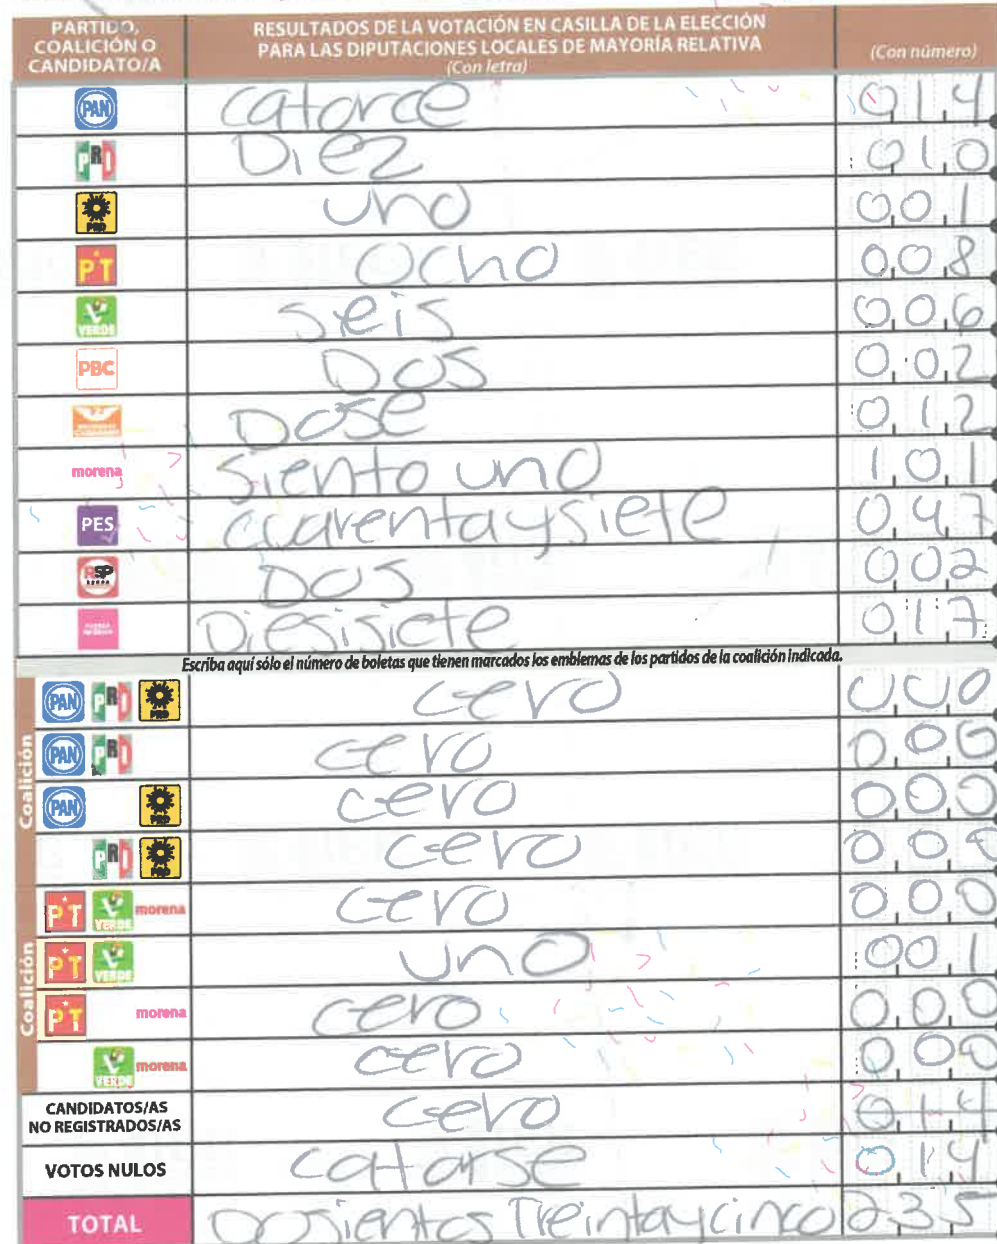 PARTIDO, COALICIÓN O CANDIDATO/A
RESULTADOS DE LA VOTACIÓN EN CASILLA DE LA ELECCIÓN
PARA LAS DIPUTACIONES LOCALES DE MAYORÍA RELATIVA
(Con letra)
(Con número)
PAN catorce 014
PRI Diez 010
PRD uno 001
PT ocho 008
VERDE seis 006
PBC Dos 002
Dose 012
morena Siento uno 101
PES cuarentaysiete 047
RSP Dos 002
Diesisiete 017
Escriba aquí sólo el número de boletas que tienen marcados los emblemas de los partidos de la coalición indicada.
Coalición
PAN PRI PRD cero 000
PAN PRI cero 000
PAN PRD cero 000
PRI PRD cero 000
Coalición
PT VERDE morena cero 000
PT VERDE uno 001
PT morena cero 000
VERDE morena cero 000
CANDIDATOS/AS NO REGISTRADOS/AS cero 014
VOTOS NULOS catorse 014
TOTAL Dosientos Treintaycinco 235